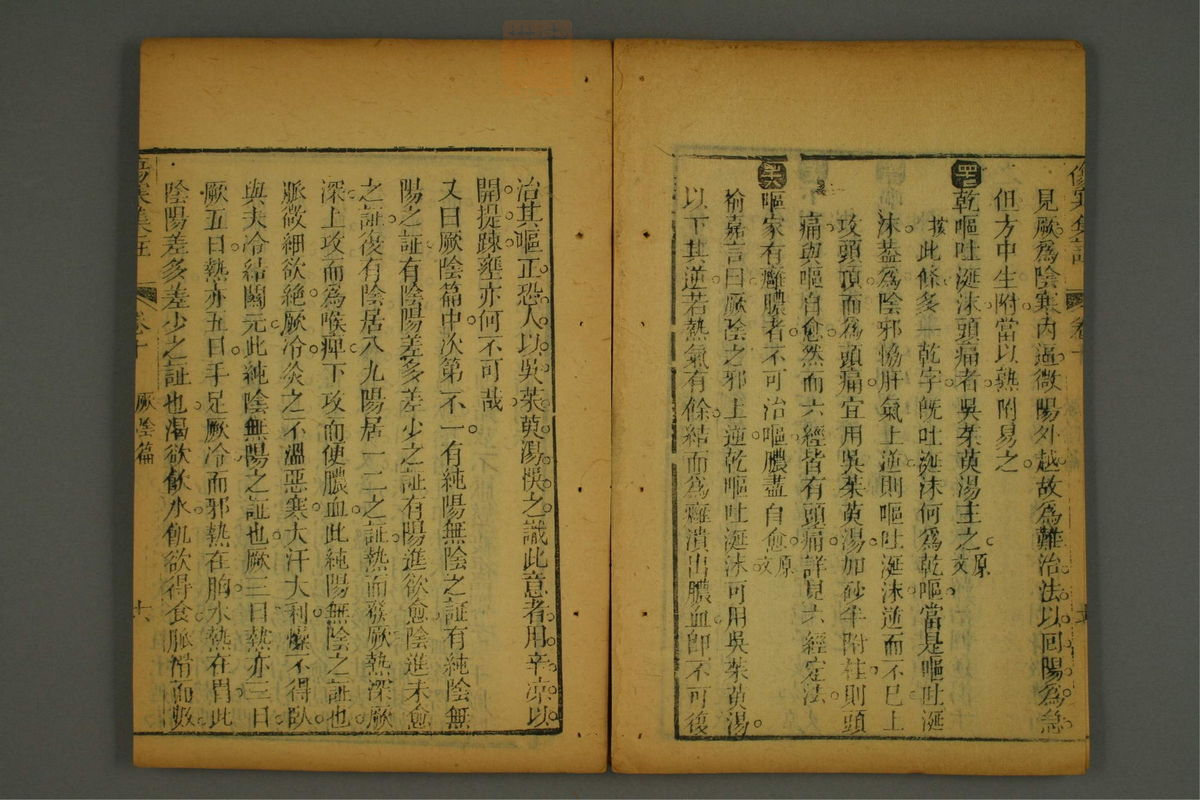 傷寒集註 卷十
見厥爲陰寒內逼微陽外越故爲難治法以囘陽爲急
但方中生附當以熟附易之
乾嘔吐涎沫頭痛者吳茱萸湯主之原文
按此條多一乾字旣吐涎沫何爲乾嘔當是嘔吐涎
沫葢爲陰邪協肝氣上逆則嘔吐涎沫逆而不已上
攻頭頂而爲頭痛宜用吳茱萸湯加砂半附桂則頭
痛與嘔自愈然而六經皆有頭痛詳見六經定法
嘔家有癰膿者不可治嘔膿盡自愈原文
喻嘉言曰厥陰之邪上逆乾嘔吐涎沫可用吳茱萸湯
以下其逆若熱氣有餘結而爲癰潰出膿血卽不可復
治其嘔正恐人以吳茱萸湯悞之識此意者用辛涼以
開提踈壅亦何不可哉
又曰厥陰篇中次第不一有純陽無陰之証有純陰無
陽之証有陰陽差多差少之証有陽進欲愈陰進未愈
之証復有陰居八九陽居一二之証熱而發厥熱深厥
深上攻而爲喉痺下攻而便膿血此純陽無陰之証也
脈微細欲絕厥冷灸之不溫惡寒大汗大利燥不得臥
與夫冷結關元此純陰無陽之証也厥三日熱亦三日
厥五日熱亦五日手足厥冷而邪熱在胸水熱在胃此
陰陽差多差少之証也渴欲飲水飢欲得食脈滑而數
卷十 厥陰篇 十六